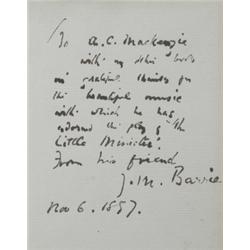 To A. C. Mackenzie
with my
in grateful thanks for
the beautiful music
with which he has
adorned the play of "The
Little Minister".
From his friend
J. M. Barrie
Nov 6. 1897.